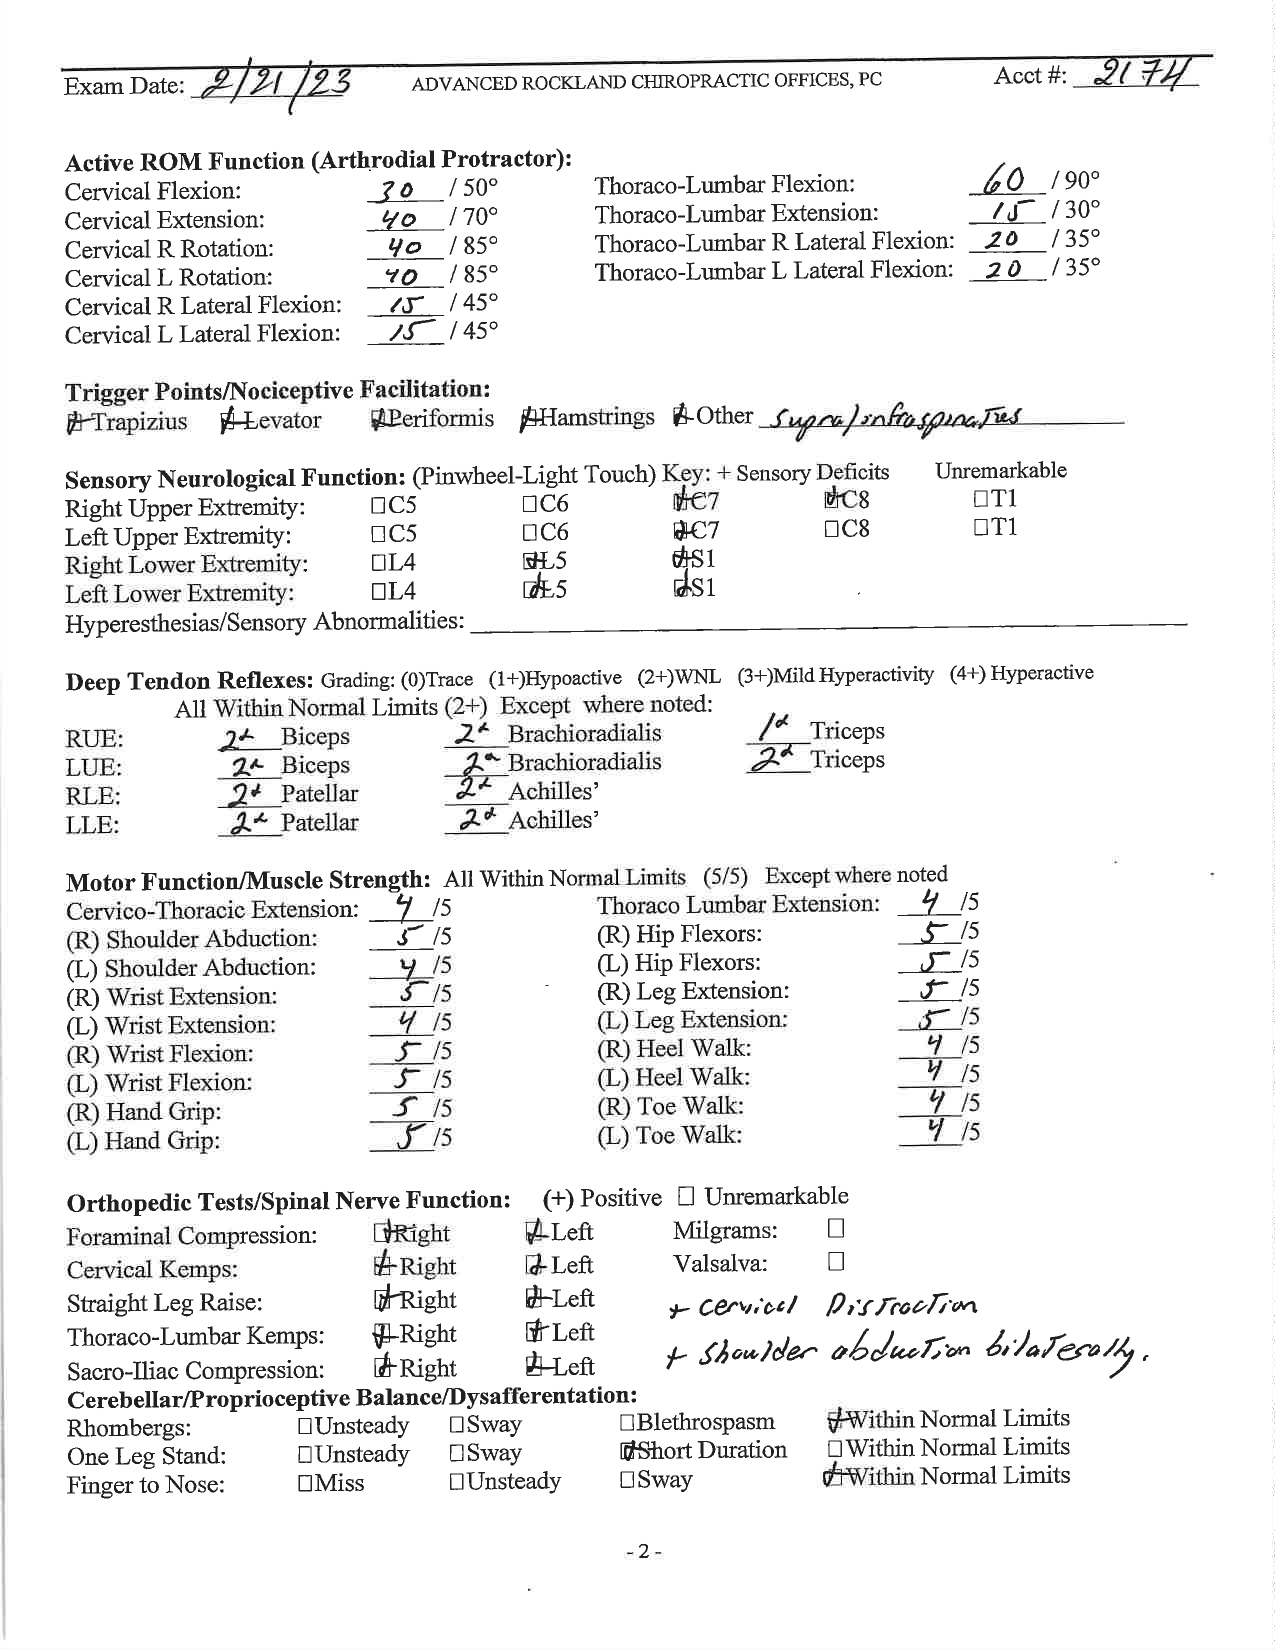 Exam Date: 2/21/23 ADVANCED ROCKLAND CHIROPRACTIC OFFICES, PC Acct #: 2174
Active ROM Function (Arthrodial Protractor):
Cervical Flexion: 30 / 50° Thoraco-Lumbar Flexion: 60 / 90°
Cervical Extension: 40 / 70° Thoraco-Lumbar Extension: 15 / 30°
Cervical R Rotation: 40 / 85° Thoraco-Lumbar R Lateral Flexion: 20 / 35°
Cervical L Rotation: 40 / 85° Thoraco-Lumbar L Lateral Flexion: 20 / 35°
Cervical R Lateral Flexion: 15 / 45°
Cervical L Lateral Flexion: 15 / 45°
Trigger Points/Nociceptive Facilitation:
Trapizius Levator Periformis Hamstrings Other Supra/infraspinatus
Sensory Neurological Function: (Pinwheel-Light Touch) Key: + Sensory Deficits Unremarkable
Right Upper Extremity: □C5 □C6 +C7 +C8 □T1
Left Upper Extremity: □C5 □C6 +C7 □C8 □T1
Right Lower Extremity: □L4 +L5 +S1
Left Lower Extremity: □L4 +L5 +S1
Hyperesthesias/Sensory Abnormalities:
Deep Tendon Reflexes: Grading: (0)Trace (1+)Hypoactive (2+)WNL (3+)Mild Hyperactivity (4+) Hyperactive
All Within Normal Limits (2+) Except where noted:
RUE: 2+ Biceps 2+ Brachioradialis 1+ Triceps
LUE: 2+ Biceps 2+ Brachioradialis 2+ Triceps
RLE: 2+ Patellar 2+ Achilles’
LLE: 2+ Patellar 2+ Achilles’
Motor Function/Muscle Strength: All Within Normal Limits (5/5) Except where noted
Cervico-Thoracic Extension: 4 /5 Thoraco Lumbar Extension: 4 /5
(R) Shoulder Abduction: 5 /5 (R) Hip Flexors: 5 /5
(L) Shoulder Abduction: 4 /5 (L) Hip Flexors: 5 /5
(R) Wrist Extension: 5 /5 (R) Leg Extension: 5 /5
(L) Wrist Extension: 4 /5 (L) Leg Extension: 5 /5
(R) Wrist Flexion: 5 /5 (R) Heel Walk: 4 /5
(L) Wrist Flexion: 5 /5 (L) Heel Walk: 4 /5
(R) Hand Grip: 5 /5 (R) Toe Walk: 4 /5
(L) Hand Grip: 5 /5 (L) Toe Walk: 4 /5
Orthopedic Tests/Spinal Nerve Function: (+) Positive □ Unremarkable
Foraminal Compression: +Right +Left Milgrams: □
Cervical Kemps: +Right +Left Valsalva: □
Straight Leg Raise: +Right +Left + cervical Distraction
Thoraco-Lumbar Kemps: +Right +Left
+ shoulder abduction bilaterally.
Sacro-Iliac Compression: +Right +Left
Cerebellar/Proprioceptive Balance/Dysafferentation:
Rhombergs: □Unsteady □Sway □Blethrospasm +Within Normal Limits
One Leg Stand: □Unsteady □Sway +Short Duration □Within Normal Limits
Finger to Nose: □Miss □Unsteady □Sway +Within Normal Limits
- 2 -